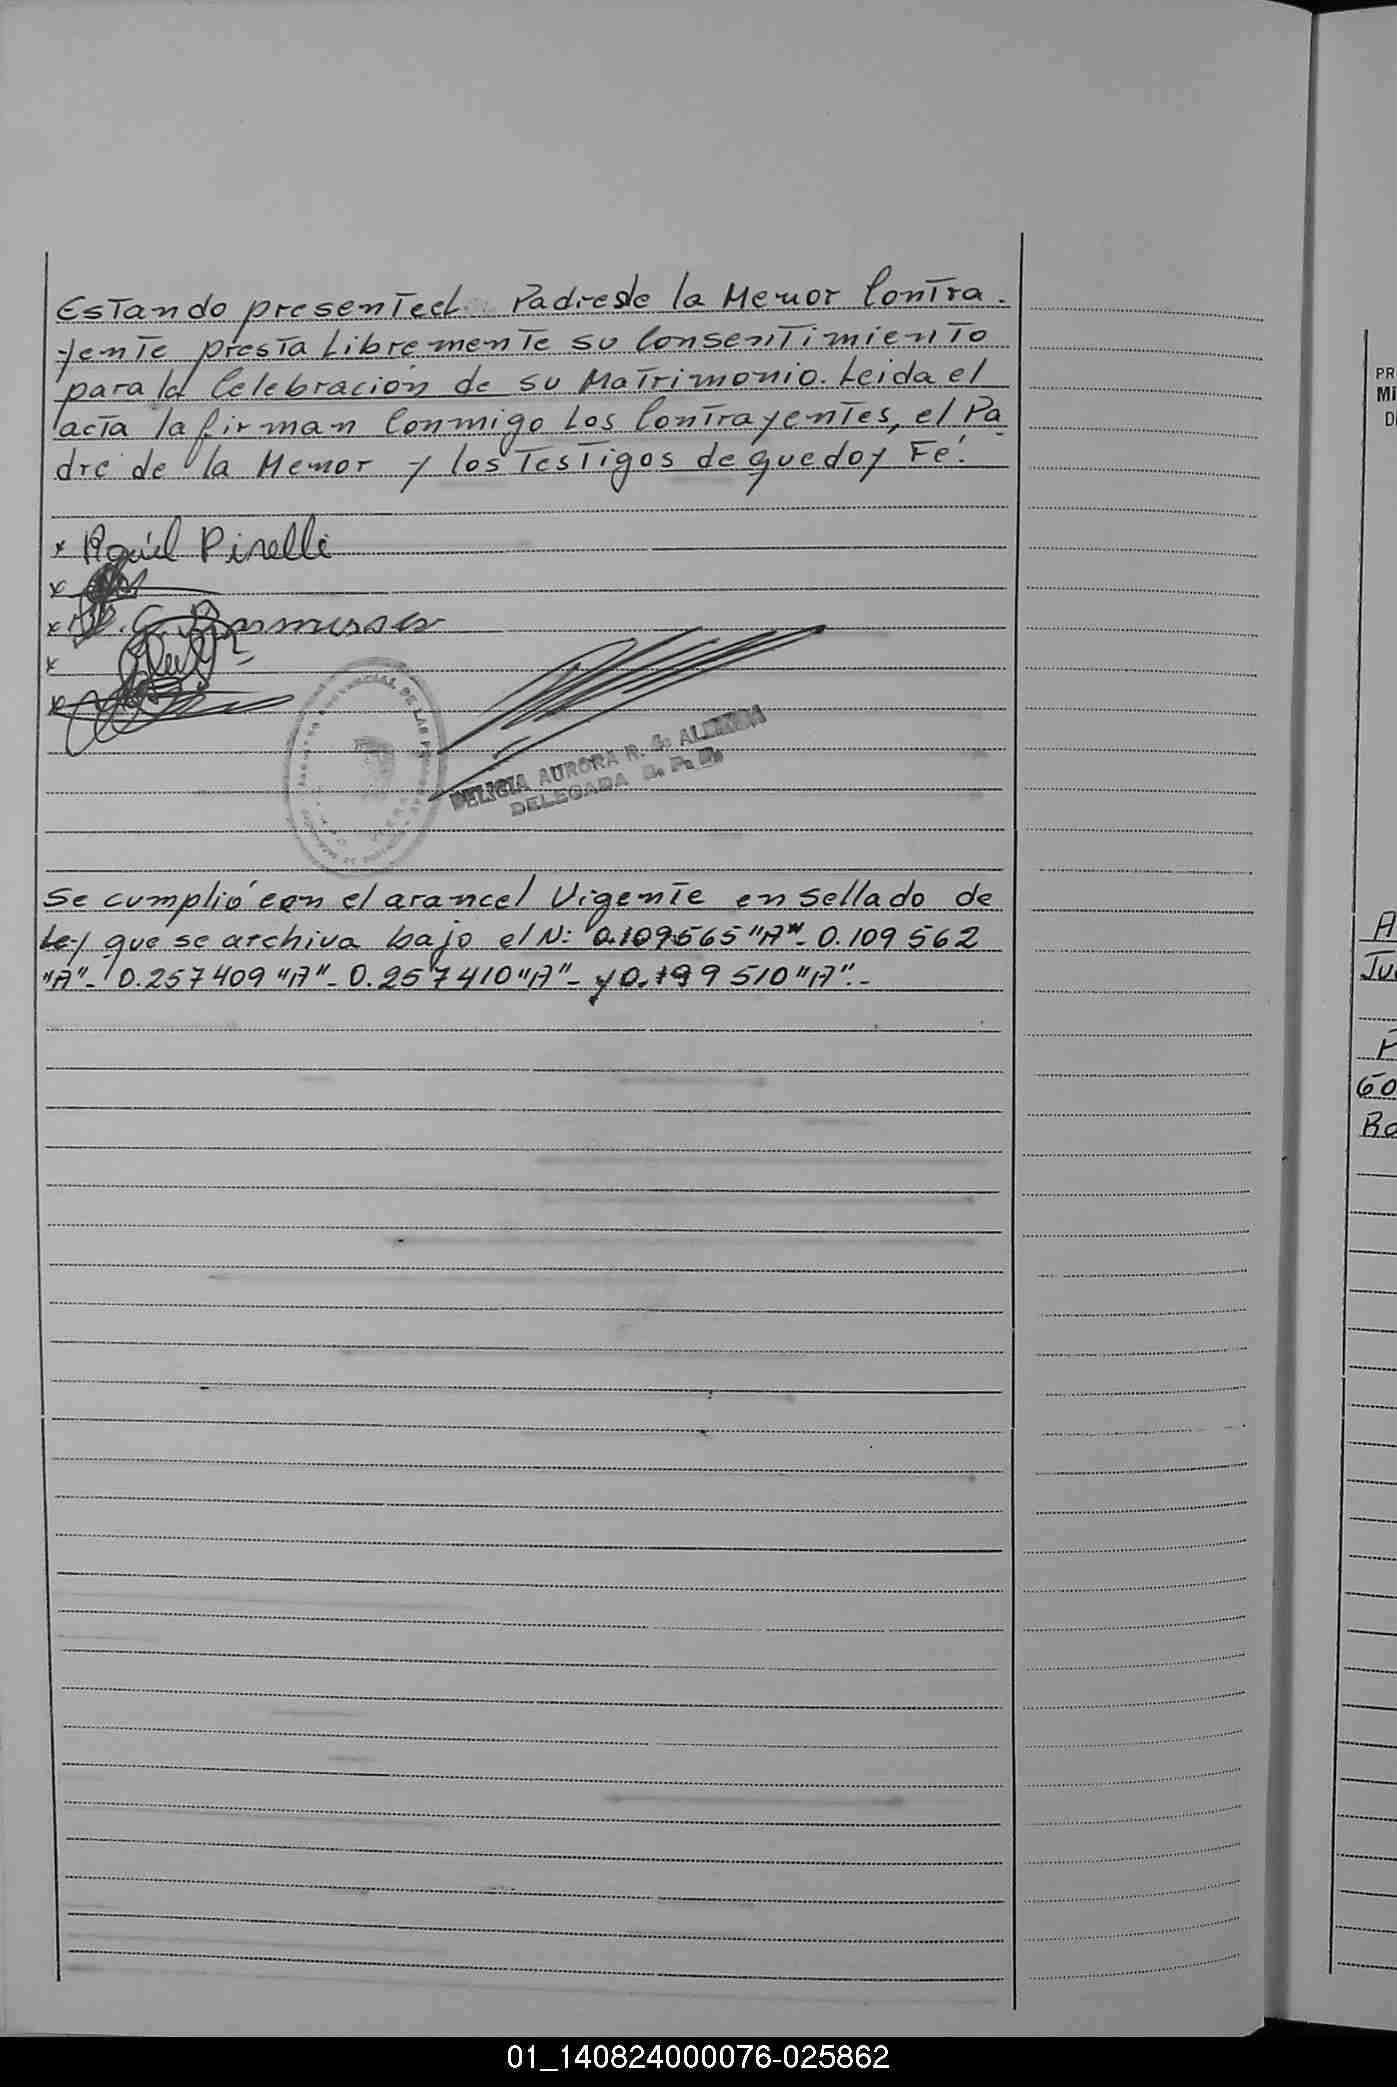 Estando presente el Padre de la Menor Contra-
yente presta Libremente su Consentimiento
para la Celebración de su Matrimonio. Leida el
acta la firman Conmigo Los Contrayentes, el Pa
dre de la Menor y los Testigos de que doy Fé.
x Raúl Pirelli
x
x G. Rasmussen
x
x
PROVINCIAL DE LAS
DELICIA AURORA R. de ALEMEDA
DELEGADA
Se cumplió con el arancel Vigente en Sellado de
Ley que se archiva bajo el N: 0.109565 "A" - 0.109 562
"A" - 0.257409 "A" - 0.257410 "A" - y 0.199 510 "A". -
PR
Mi
D
A
Ju
P
60
Ro
01_140824000076-025862